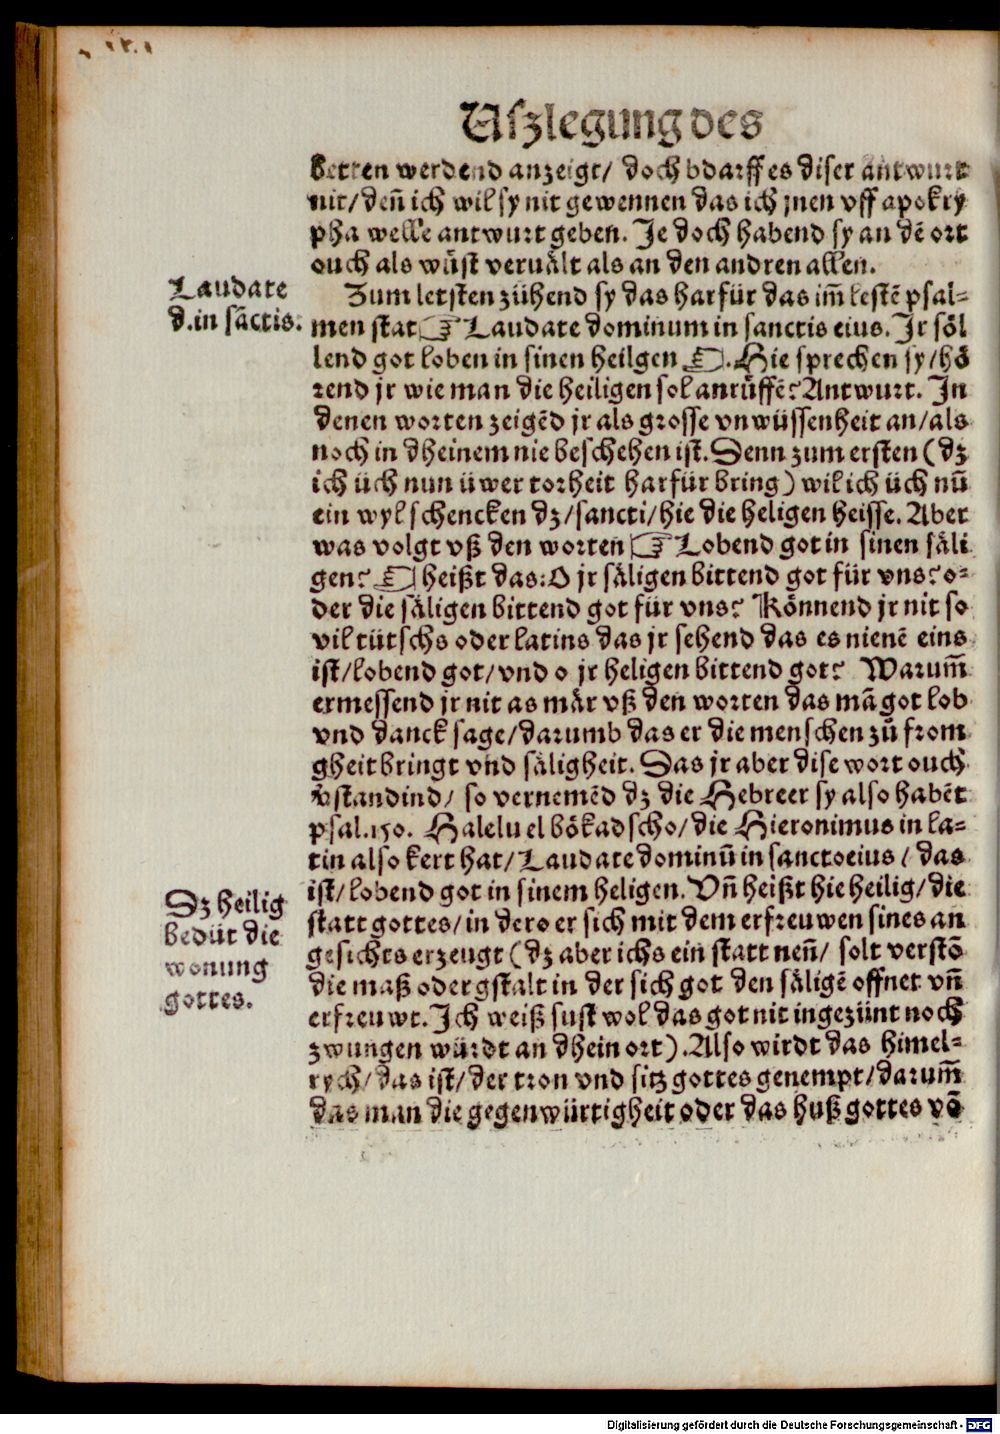 Uszlegung des
betten werdend anzeigt/ doch bdarff es diser antwurt
nit/ deñ ich wil sy nit gewennen das ich jnen vff apokry
pha welle antwurt geben. Je doch habend sy an dē ort
ouch als wüst veruält als an den andren allen.
Laudate
d.in sāctis.
Zum letsten zühend sy das harfür das im̄ lestē psal-
men stat ☞ Laudate dominum in sanctis eius. Jr söl
lend got loben in sinen heilgen ☜. Hie sprechen sy/hö
rend jr wie man die heiligen sol anrüffē? Antwurt. In
denen worten zeigēd jr als grosse vnwüssenheit an/als
noch in dheinem nie beschehen ist. Denn zum ersten (dz
ich üch nun üwer torheit harfür bring) wil ich üch nū
ein wyl schencken dz/sancti/hie die heligen heisse. Aber
was volgt vß den worten ☞ Lobend got in sinen säli
gen? ☜ heißt das: O jr säligen bittend got für vns? o-
der die säligen bittend got für vns? Könnend jr nit so
vil tütschs oder latins das jr sehend das es nienē eins
ist/lobend got/vnd o jr heligen bittend got? Warum̄
ermessend jr nit as mär vß den worten das mā got lob
vnd danck sage/darumb das er die menschen zů from
gheit bringt vnd säligheit. Das jr aber dise wort ouch
v̄standind/ so vernemēd dz die Hebreer sy also habēt
psal.150. Halelu el bökadscho/die Hieronimus in la-
tin also kert hat/Laudate dominū in sancto eius/ das
ist/lobend got in sinem heligen. Vñ heißt hie heilig/die
Dz heilig
bedüt die
wonung
gottes.
statt gottes/in dero er sich mit dem erfreuwen sines an
gesichts erzeugt (dz aber ichs ein statt neñ/ solt verstō
die maß oder gstalt in der sich got den säligē offnet vñ
erfreuwt. Ich weiß sust wol das got nit ingezünt noch
zwungen würdt an dhein ort). Also wirdt das himel-
rych/das ist/der tron vnd sitz gottes genempt/darum̄
das man die gegenwürtigheit oder das huß gottes vō
Digitalisierung gefördert durch die Deutsche Forschungsgemeinschaft - DFG